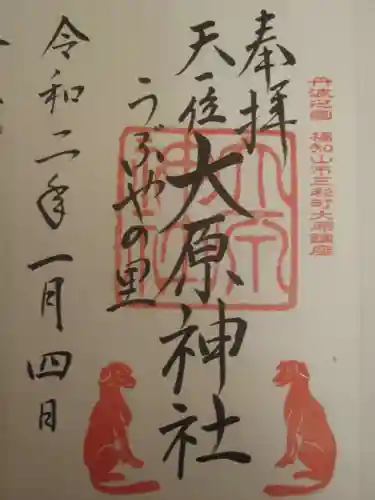 丹波之国 福知山市三和町大原鎮座
奉拝
天一位
大原神社
うぶやの里
令和二年一月四日